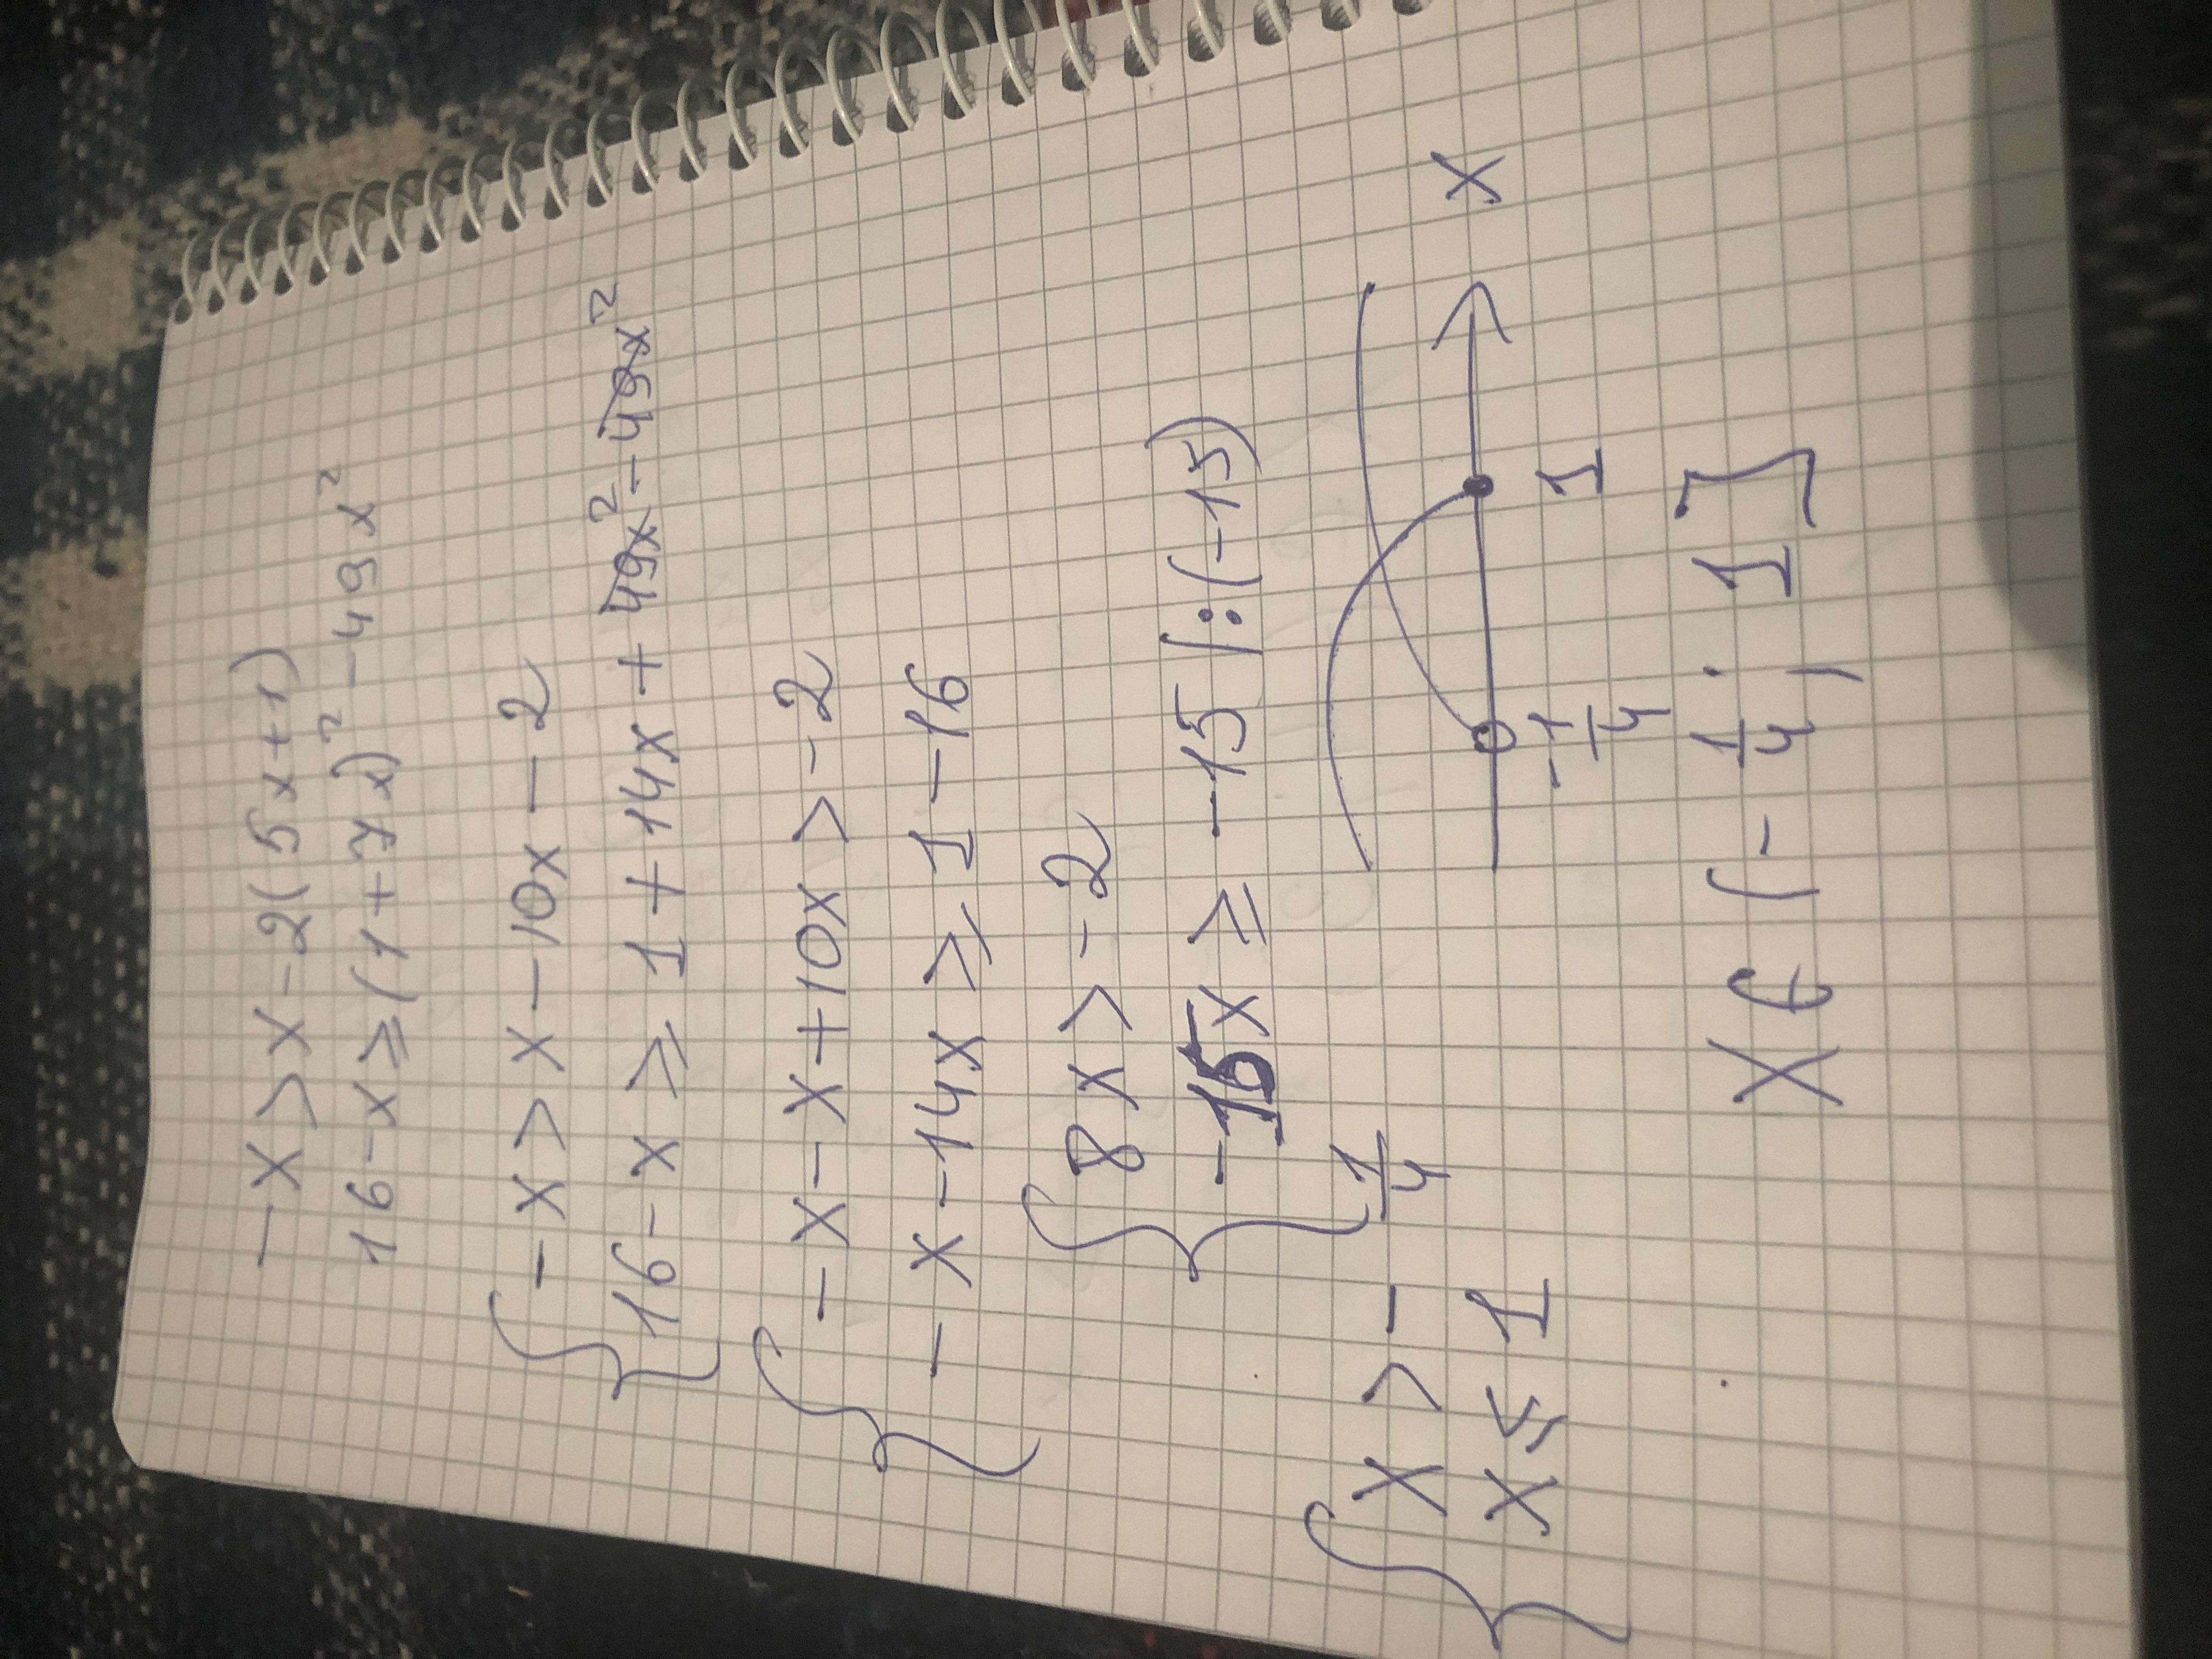 -x > x - 2(5x+1)
16 - x ≥ (1+7x)² - 49x²
{ -x > x - 10x - 2
16 - x ≥ 1 + 14x + 49x² - 49x²
{ -x - x + 10x > -2
-x - 14x ≥ 1 - 16
{ 8x > -2
-15x ≥ -15 |:(-15)
{ x > - 1/4
x ≤ 1
x
-1/4 1
x ∈ (-1/4; 1]